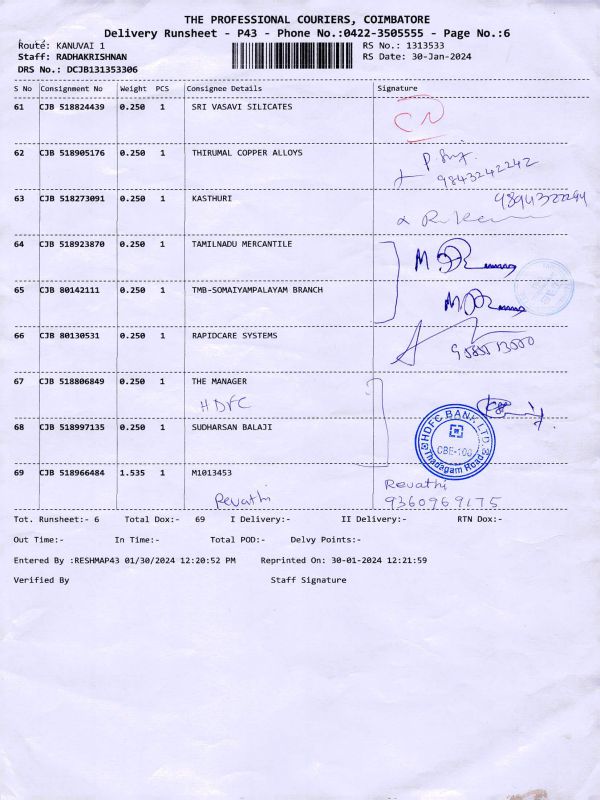 THE PROFESSIONAL COURIERS, COIMBATORE
Delivery Runsheet - P43 - Phone No.:0422-3505555 - Page No.:6
Route: KANUVAI 1 RS No.: 1313533
Staff: RADHAKRISHNAN RS Date: 30-Jan-2024
DRS No.: DCJB131353306
S No Consignment No Weight PCS Consignee Details Signature
61 CJB 518824439 0.250 1 SRI VASAVI SILICATES
CN
62 CJB 518905176 0.250 1 THIRUMAL COPPER ALLOYS
9843242242
63 CJB 518273091 0.250 1 KASTHURI
64 CJB 518923870 0.250 1 TAMILNADU MERCANTILE
65 CJB 80142111 0.250 1 TMB-SOMAIYAMPALAYAM BRANCH
66 CJB 80130531 0.250 1 RAPIDCARE SYSTEMS
67 CJB 518806849 0.250 1 THE MANAGER
HDFC
HDFC BANK LTD
CBE-100
Thadagam Road
68 CJB 518997135 0.250 1 SUDHARSAN BALAJI
69 CJB 518966484 1.535 1 M1013453
Revathi
Revathi
9360969175
Tot. Runsheet:- 6 Total Dox:- 69 I Delivery:- II Delivery:- RTN Dox:-
Out Time:- In Time:- Total POD:- Delvy Points:-
Entered By :RESHMAP43 01/30/2024 12:20:52 PM Reprinted On: 30-01-2024 12:21:59
Verified By Staff Signature